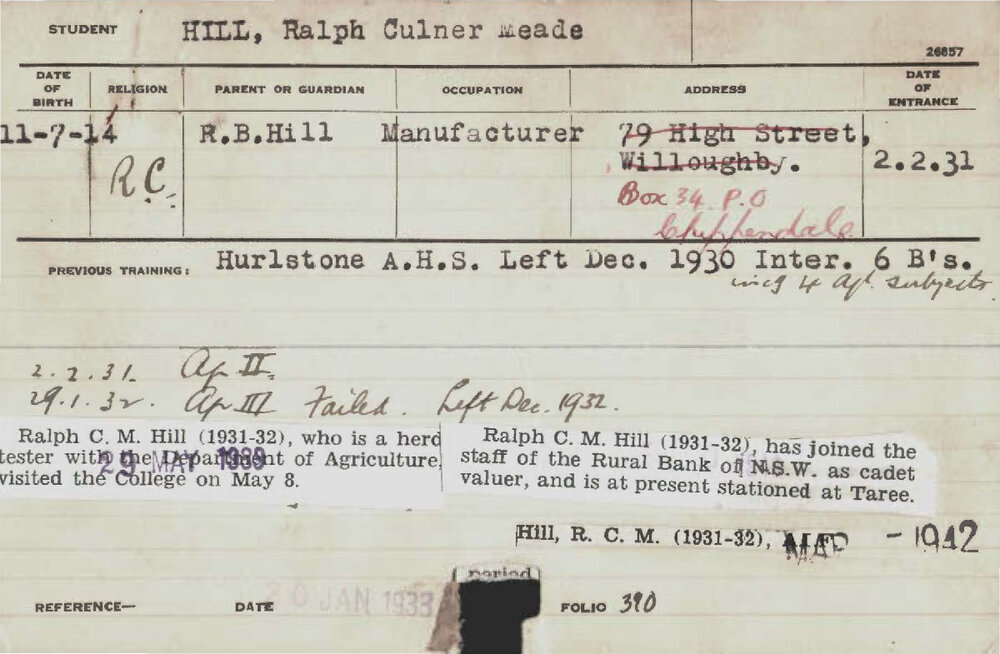 STUDENT HILL, Ralph Culner Meade
26857
DATE OF BIRTH RELIGION PARENT OR GUARDIAN OCCUPATION ADDRESS DATE OF ENTRANCE
11-7-14 R.B.Hill Manufacturer 79 High Street,
R.C. Willoughby. 2.2.31
Box 34 P.O
Chippendale
PREVIOUS TRAINING: Hurlstone A.H.S. Left Dec. 1930 Inter. 6 B's.
incg 4 Ag. subjects
2.2.31. Ap II.
29.1.32. Ap III Failed. Left Dec. 1932.
Ralph C. M. Hill (1931-32), who is a herd
tester with the Department of Agriculture,
visited the College on May 8.
29 MAY 1939
Ralph C. M. Hill (1931-32), has joined the
staff of the Rural Bank of N.S.W. as cadet
valuer, and is at present stationed at Taree.
Hill, R. C. M. (1931-32), - 1942
period
REFERENCE— DATE 20 JAN 1933 FOLIO 390